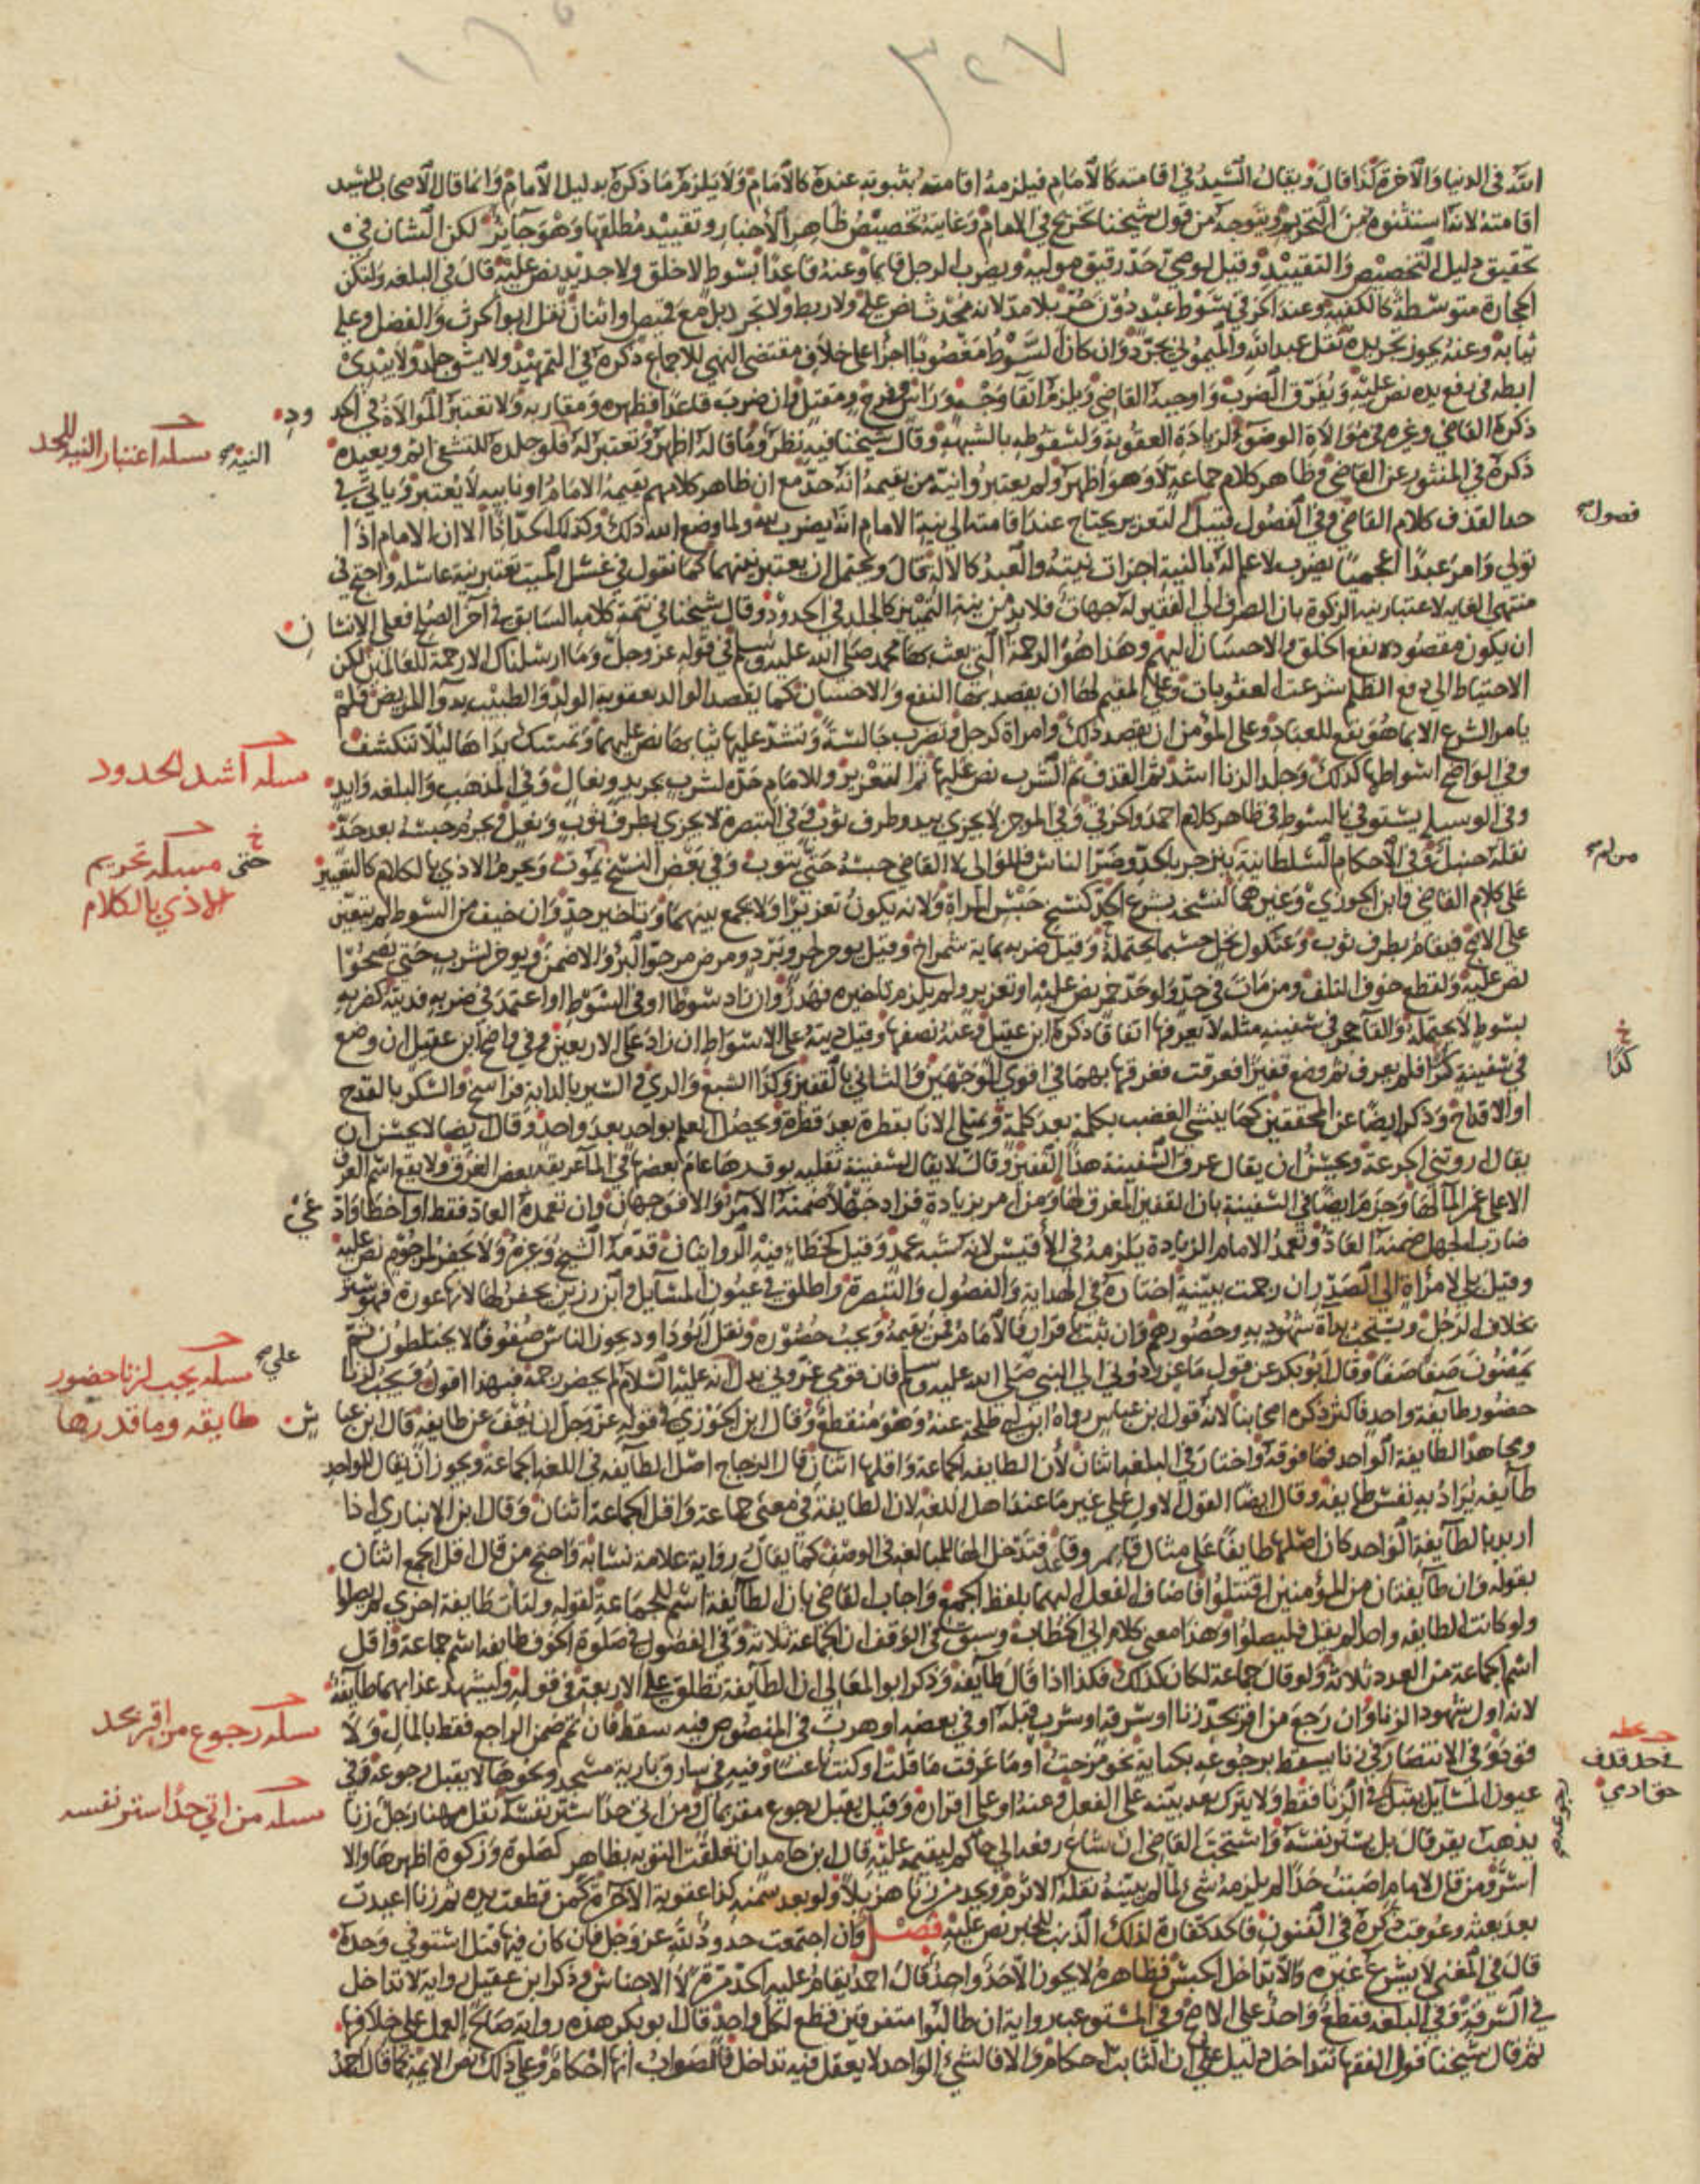 ٣٢٧
الله في الدنيا والآخرة كذا قال ويقال السيد في اقامته كالامام فيلزمه اقامته بثبوته عنده كالامام ولا يلزم ما ذكره بدليل الامام وانما قال الاصحاب للسيد
اقامته لانه استثنوه من التحريم ويتوجه من قول شيخنا تخريج في الامام وغايته تخصيص ظاهر الاخبار وتقييد مطلقها وهو جائز لكن الشان في
تحقيق دليل التخصيص والتقييد وقيل لوصي حد رقيق موليه ويضرب الرجل قائما وعنه قاعدا بسوط لا خلق ولا جديد نص عليه قال في البلغه ولتكن
الحجارة متوسطة كالكفية وعند الخرقي سوط عبد دون حر بلا مد لانه محدث نص عليه ولا ربط ولا تجرد بل مع قميص او اثنان نقل ابو الحرث والفضل وعليه
ثيابه وعنه يجوز تجريده نقل عبد الله والميموني يجرد وان كان السوط مغصوبا اجزأ على خلاف مقتضى النهي للاجماع ذكره في التمهيد ولا يشق جلد ولا يبدي
ابطه في رفع يده نص عليه ويفرق الضرب واوجبه القاضي ويلزم اتقا وجه وراس وفرج ومقتل وان ضرب قاعدا فظهره ومقاربه ولا تعتبر الموالاة في الحدود
ذكره القاضي وغيره في موالاة الوضوء لزيادة العقوبة ولسقوطه بالشبهه وقال شيخنا فيه نظر وما قاله اظهر وتعتبر له النية فلو جلده للتشفي اثم ويعيده
ذكره في المنثور عن القاضي وظاهر كلام جماعة لا وهو اظهر ولم يعتبروا نية من يقيمه انه حد مع ان ظاهر كلامهم يقيمه الامام او نايبه لا يعتبر وياتي في
حد القذف كلام القاضي وفي الفصول قبيل فصول التعزير يحتاج عند اقامته الى نية الامام انه يضرب لله ولما وضع الله ذلك وكذلك الحداد الا ان الامام اذا
تولى وامر عبدا اعجميا يضرب لا علم له بالنية اجزات نيته والعبد كالاله قال ويحتمل ان يعتبر نيتهما كما نقول في غسل الميت تعتبر نية غاسله واحتج في
منتهى الغايه لاعتبار نية الزكوة بان الصرف الى الفقير له جهات فلا بد من نية التمييز كالجلد في الحدود وقال شيخنا في تتمة كلامه السابق في آخر الصلح فعلى الانسان
ان يكون مقصوده نفع الخلق والاحسان اليهم وهذا هو الرحمة التي بعث بها محمد صلى الله عليه وسلم في قوله عز وجل وما ارسلناك الا رحمة للعالمين لكن
الاحتياط الى دفع الظلم شرعت العقوبات وعلى المقيم لها ان يقصد بها النفع والاحسان كما يقصد الوالد بعقوبة الولد والطبيب بدوا المريض فلم
يامر الشرع الا بما هو نفع للعباد وعلى المؤمن ان يقصد ذلك وامراة كرجل وتضرب جالسة وتشد عليها ثيابها نص عليهما وتمسك يداها لئلا تنكشف
وفي الواضح اسواطها كذلك وجلد الزنا اشد ثم القذف ثم الشرب نص عليها ثم التعزير وللامام حده لشرب بجريد ونعال وفي المذهب والبلغه وايد
وفي الوسيله يستوفي بالسوط في ظاهر كلام احمد والخرقي وفي الموجز لا يجزي بيد وطرف ثوب وفي التبصرة لا يجزي بطرف ثوب ونعل ويحرم حبسه بعد حد
نقله حنبل وفي الاحكام السلطانية من لم ينزجر بالحد وضر الناس فللوالي لا القاضي حبسه حتى يتوب وفي بعض النسخ حتى يموت ويحرم الاذى بالكلام كالتعيير
على كلام القاضي وابن الجوزي وغيرهما لنسخه بشرع الحد كنسخ حبس المراة ولانه يكون تعزيرا ولا يجمع بينهما وتاخير حد وان خيف من السوط لم يتعين
على الاصح فيقام بطرف ثوب وعثكول نخل حسبما يحتمله وقيل ضربه بماية شمراخ وقيل يوخر لحر وبرد ومرض مرجو البرؤ والا ضمن ويوخر لشرب حتى يصحو
نص عليه ولقطع خوف التلف ومن مات في حد ولو حد خمر نص عليه او تعزير ولم يلزم تاخيره فهدر وان زاد سوطا او في السوط او اعتمد في ضربه فديته كضربه
بسوط لا يحتمله والقا حجر في سفينه مثله لا يغرقها اتفاقا ذكره ابن عقيل وعنه نصفها وقيل ديته على الاسواط ان زاد على الاربعين وفي واضح ابن عقيل ان وضع
في سفينة كرا فلم يغرق ثم وضع قفيزا فغرقت فغرقها بهما في اقوى الوجهين والثاني بالقفيز وكذا الشبع والري والسير بالدابة فراسخ والسكر بالقدح
او الاقداح وذكر ايضا عن المحققين كما ينشي الغضب بكلمة بعد كلمة ويمتلي الانا بقطرة بعد قطرة ويحصل العلم بواحد بعد واحد وقال ايضا لا يحسن ان
يقال اروتني الجرعة ويحسن ان يقال غرق السفينة هذا القفيز وقال لا يقال السفينة ثقلية بوقرها غام بعضها في الما غريقة بعض الغرق ولا يقع اسم الغرق
الا على غمر الما لها وجزم ايضا في السفينة بان القفيز المغرق لها ومن امر بزيادة فزاد جهلا ضمنه الآمر والا فوجهان وان تعمده العاد فقط او اخطا وادعى
ضارب الجهل ضمنه العاد وتعمد الامام الزيادة يلزمه في الاقيس لانه شبه عمد وقيل كخطاء فيه الروايتان قدمه الشيخ وغيره ولا يحفر لمرجوم نص عليه
وقيل بلى لامراة الى الصدر ان رجمت ببينة اختاره في الهداية والفصول والتبصرة واطلق في عيون المسايل وابن رزين يحفر لها لانها عورة فهو ستر
بخلاف الرجل ويستحب بداة شهود به وحضورهم وان ثبت باقرار فالامام ثم من يقيمه ويجب حضوره ونقل ابو داود يجوز الناس صفوفا لا يختلطون ثم
يمضون صفا صفا وقال ابو بكر عن قول ماعز ردوني الى النبي صلى الله عليه وسلم فان قومي غروني يدل انه عليه السلام لم يحضر رجمه فبهذا اقول ويجب لزنا
حضور طايفة واحد فاكثر ذكره اصحابنا لانه قول ابن عباس رواه ابن ابي طلحة عنه وهو منقطع وقال ابن الجوزي في قوله عز وجل ان يعف عن طايفة قال ابن عباس
ومجاهد الطايفة الواحد فما فوقه واختار في البلغه اثنان لان الطايفه الجماعة واقلها اثنان قال الزجاج اصل الطايفه في اللغه الجماعة ويجوز ان يقال للواحد
طايفه يراد به نفس طايفه وقال ايضا القول الاول على غير ما عند اهل اللغه لان الطايفة في معنى جماعة واقل الجماعة اثنان وقال ابن الانباري اذا
اريد بالطايفة الواحد كان اصلها طايفا على مثال قايم وقاعد فتدخل الها للمبالغه في الوصف كما يقال رواية علامة نسابة واحتج من قال اقل الجمع اثنان
بقوله وان طايفتان من المؤمنين اقتتلوا فاضاف الفعل اليهما بلفظ الجمع واجاب القاضي بان الطايفة اسم للجماعة لقوله ولتات طايفة اخرى لم يصلوا
ولو كانت الطايفه واحدا لم يقل فليصلوا وهذا معنى كلام ابي الخطاب وسبق في الوقف ان الجماعة ثلاثة وفي الفصول في صلوة الخوف طايفه اسم جماعة واقل
اسم الجماعة من العدد ثلاثة ولو قال جماعة لكان كذلك فكذا اذا قال طايفة وذكر ابو المعالي ان الطايفة تطلق على الاربعة في قوله وليشهد عذابهما طايفة
لانه اول شهود الزنا وان رجع من اقر بحد زنا او سرقة او شرب قبله او في بعضه او هرب في المنصوص فيه سقط فان تمم ضمن الراجع فقط بالمال ولا
قود وفي الانتصار في زنا يسقط برجوعه بكناية نحو مزحت او ما عرفت ما قلت او كنت ناعسا وفيه في سارق بارية مسجد ونحوها لا يقبل رجوعه وفي
عيون المسايل يقبل رجوعه في الزنا فقط ولا يترك بعد بينة على الفعل وعنه او على اقراره وقيل يقبل رجوع مقر بمال ومن اتى حدا ستر نفسه نقل مهنا رجل زنا
يذهب يقر قال بل يستر نفسه واستحب القاضي ان شاع رفعه الى حاكم ليقيمه عليه قال ابن حامد ان تعلقت التوبه بظاهر كصلوة وزكوة اظهرها والا
اسر ومن قال لامام اصبت حدا لم يلزمه شي ما لم يبينه نقله الاثرم ويحد من زنا هزيلا ولو بعد سمنه كذا عقوبة الآخرة كمن قطعت يده ثم زنا اعيدت
بعد بعثه وعوقب ذكره في الفنون فالحد كفارة لذلك الذنب للخبر نص عليه فصل وان اجتمعت حدود لله عز وجل فان كان فيها قتل استوفي وحده
قال في المغني لا يشرع غيره والا تداخل الجنس فظاهره لا يجوز الا حد واحد قال احمد يقام عليه الحد مرة لا الاجناس وذكر ابن عقيل رواية لا تداخل
في السرقة وفي البلغه فقطع واحد على الاصح وفي المستوعب رواية ان طالبوا متفرقين قطع لكل واحد قال ابو بكر هذه رواية صالح العمل على خلافها
ثم قال شيخنا قول الفقها تتداخل دليل على ان الثابت احكام والا فالشي الواحد لا يعقل فيه تداخل فالصواب انها احكام وعلى ذلك نص الايمة كما قال احمد
مسله اعتبار النيه للحد
النية
فصول
مسله اشد الحدود
حتى
مسله تحريم
الاذى بالكلام
من لم
كذا
على
مسله يجب لزنا حضور
طايفه وما قدرها
مسله رجوع من اقر بحد
مسله من اتى حدا ستر نفسه
في حد قذف
حق ادمي
رجوعه